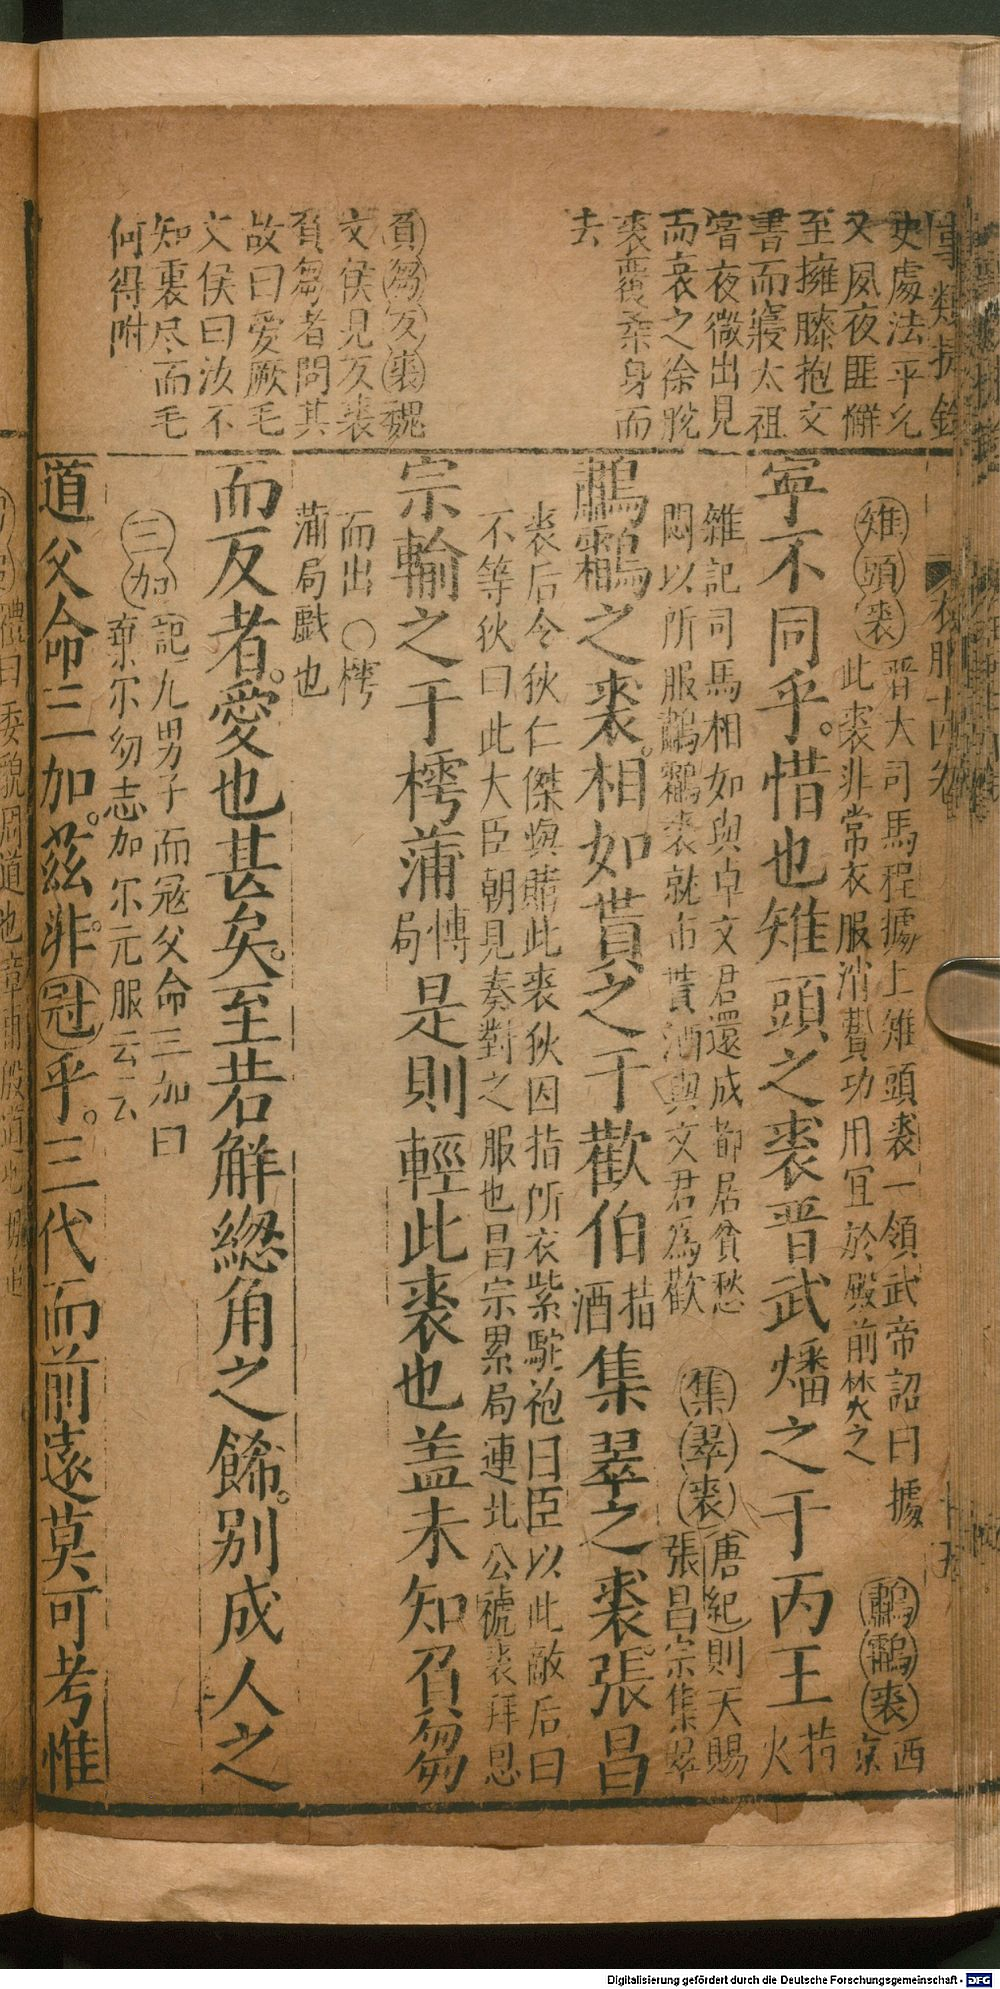 史處法平允
又夙夜匪懈
至擁膝抱文
書而寢太祖
甞夜微出見
而哀之徐脫
裘覆粲身而
去
負芻反裘魏
文侯見反裘
負芻者問其
故曰愛厥毛
文侯曰汝不
知裏尽而毛
何得附
衣服十四
雉頭裘晋大司馬程據上雉頭裘一領武帝詔曰據
此裘非常衣服消費功用冝於殿前焚之
鷫鸘裘西
京
寜不同乎惜也雉頭之裘晋武燔之于丙王
枯
火
雜記司馬相如與卓文君還成都居貧愁
悶以所服鷫鸘裘就市貰酒與文君為歡
集翠裘唐紀則天賜
張昌宗集翠
鷫鸘之裘相如貰之于歡伯
枯
酒
集翠之裘張昌
裘后令狄仁傑與賭此裘狄因指所衣紫駝袍曰臣以此敵后曰
不等狄曰此大臣朝見奏對之服也昌宗累局連北公褫裘拜恩
宗輸之于樗蒲
慱
局
是則輕此裘也盖未知負芻
而出○樗
蒲局戱也
而反者愛也甚矣至若解緫角之餙別成人之
三加記九男子而冠父命三加曰
棄尔幼志加尔元服云云
道父命三加兹非冠乎三代而前遠莫可考惟
禮曰委貌周道也章甫殷道也
Digitalisierung gefördert durch die Deutsche Forschungsgemeinschaft - DFG